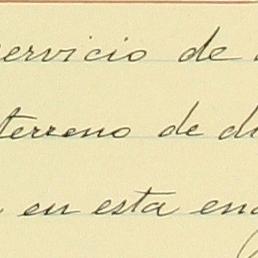 servicio de
terreno de
en esta